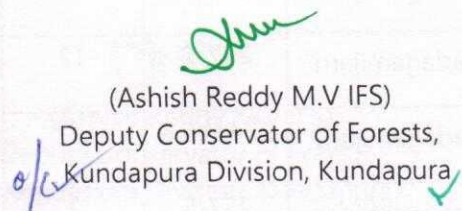 (Ashish Reddy M.V IFS)
Deputy Conservator of Forests,
o/c Kundapura Division, Kundapura